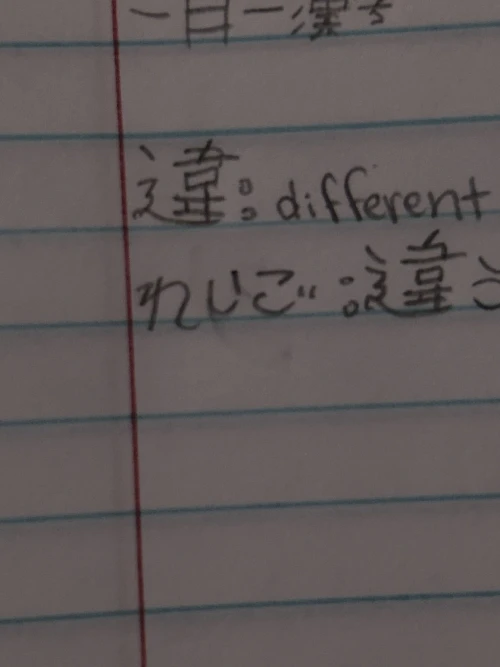 一日一漢字
違：different
れいご：違う